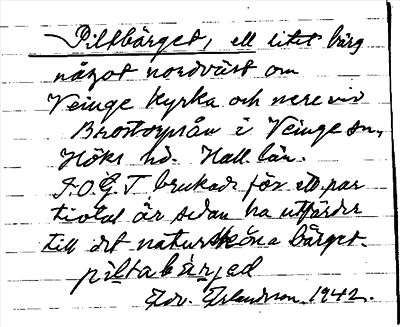 Piltbärget, ett litet bärg
något nordväst om
Veinge kyrka och nere vid
Brostorpsån i Veinge sn,
Höks hd. Hall. län.
I.O.G.T brukade för ett par
tiotal år sedan ha utfärder
till det natursköna bärget.
piltabärjed
Edv. Erlandson 1942.